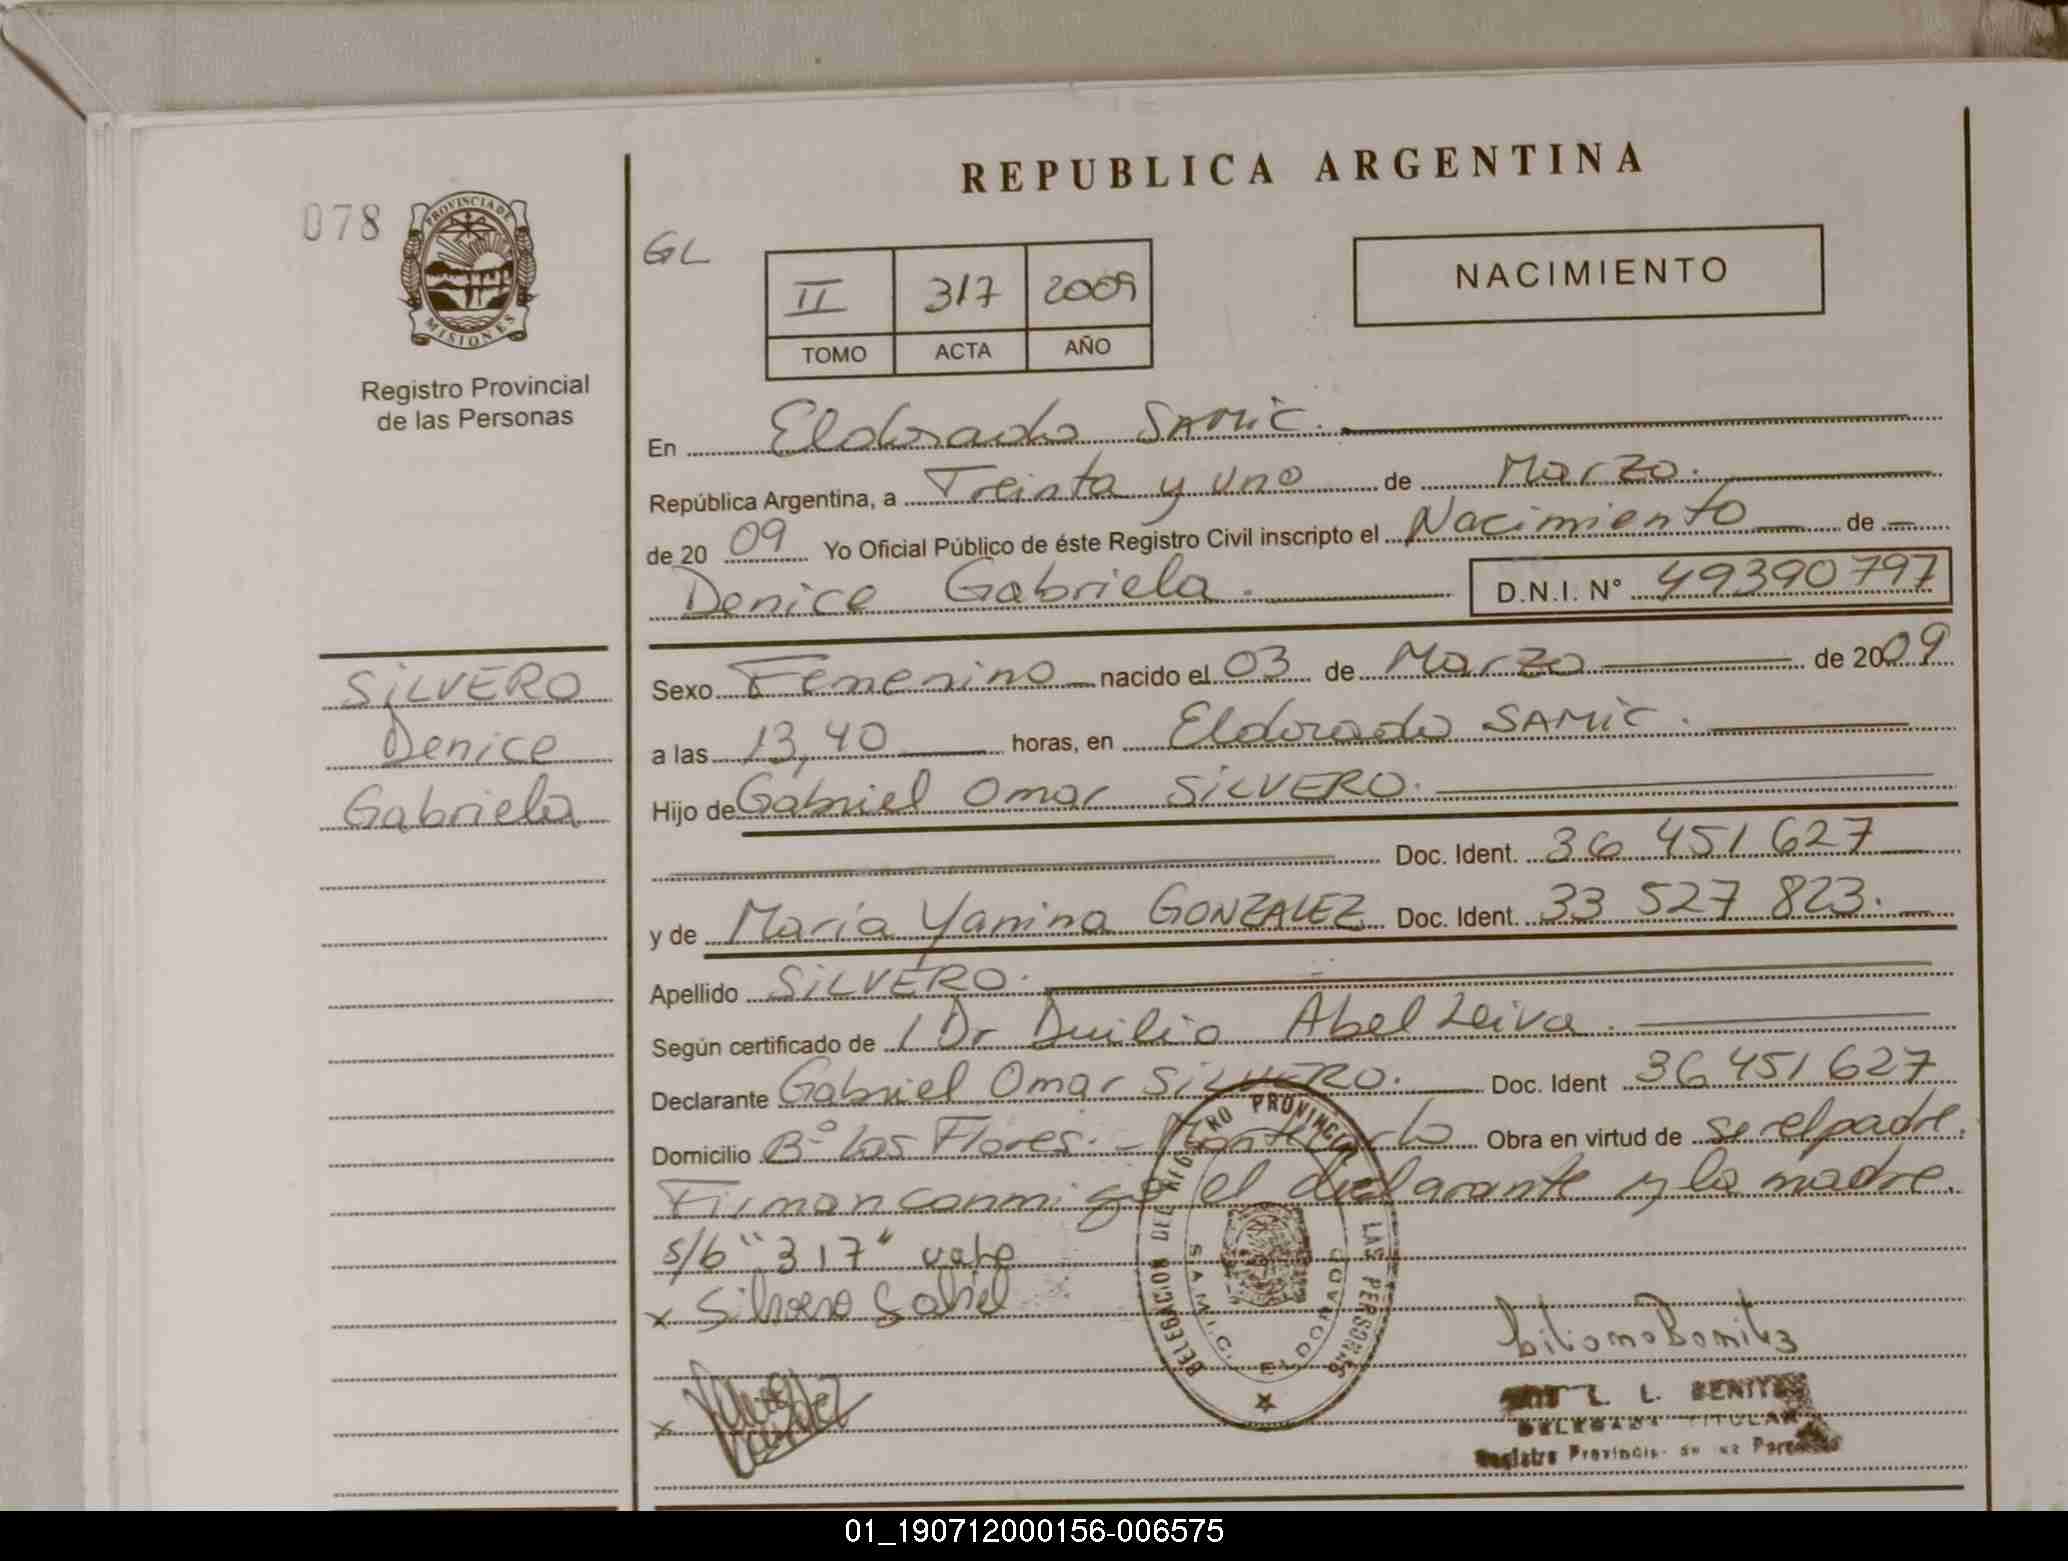 REPUBLICA ARGENTINA
078
PROVINCIA DE
MISIONES
Registro Provincial
de las Personas
GL
II 317 2009
TOMO ACTA AÑO
NACIMIENTO
En Eldorado SAMiC.
República Argentina, a Treinta y uno de Marzo.
de 20 09 Yo Oficial Público de éste Registro Civil inscripto el Nacimiento de
Denice Gabriela. D.N.I. N° 49390797
SiLVERO
Denice
Gabriela
Sexo Femenino nacido el 03 de Marzo de 2009
a las 13,40 horas, en Eldorado SAMiC.
Hijo de Gabriel Omar SiLVERO.
Doc. Ident. 36 451 627
y de María Yanina GONZALEZ Doc. Ident. 33 527 823.
Apellido SiLVERO.
Según certificado de / Dr Duilio Abel Leiva.
Declarante Gabriel Omar SiLVERO. Doc. Ident 36 451 627
Domicilio B° Las Flores. - Montecarlo Obra en virtud de ser el padre.
Firman conmigo el declarante y la madre.
s/b "317" vale
x Silvero Gabriel
x
DELEGACION DEL REGISTRO PROVINCIAL LAS PERSONAS
S.A.M.I.C. ELDORADO
L. L. BENITEZ
DELEGADA TITULAR
Registro Provincial de las Personas
01_190712000156-006575